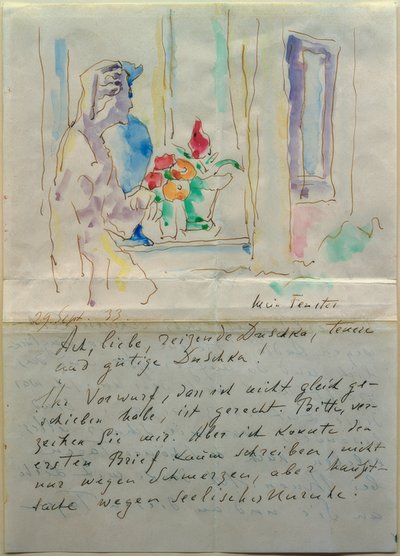 Mein Fenster
29. Sept. 33.
Ach, liebe, reizende Duschka, teuere
und gütige Duschka!
Ihr Vorwurf, dass ich nicht gleich ge-
schrieben habe, ist gerecht. Bitte, ver-
zeihen Sie mir. Aber ich konnte den
ersten Brief kaum schreiben, nicht
nur wegen Schmerzen, aber haupt-
sache wegen seelischer Unruhe.